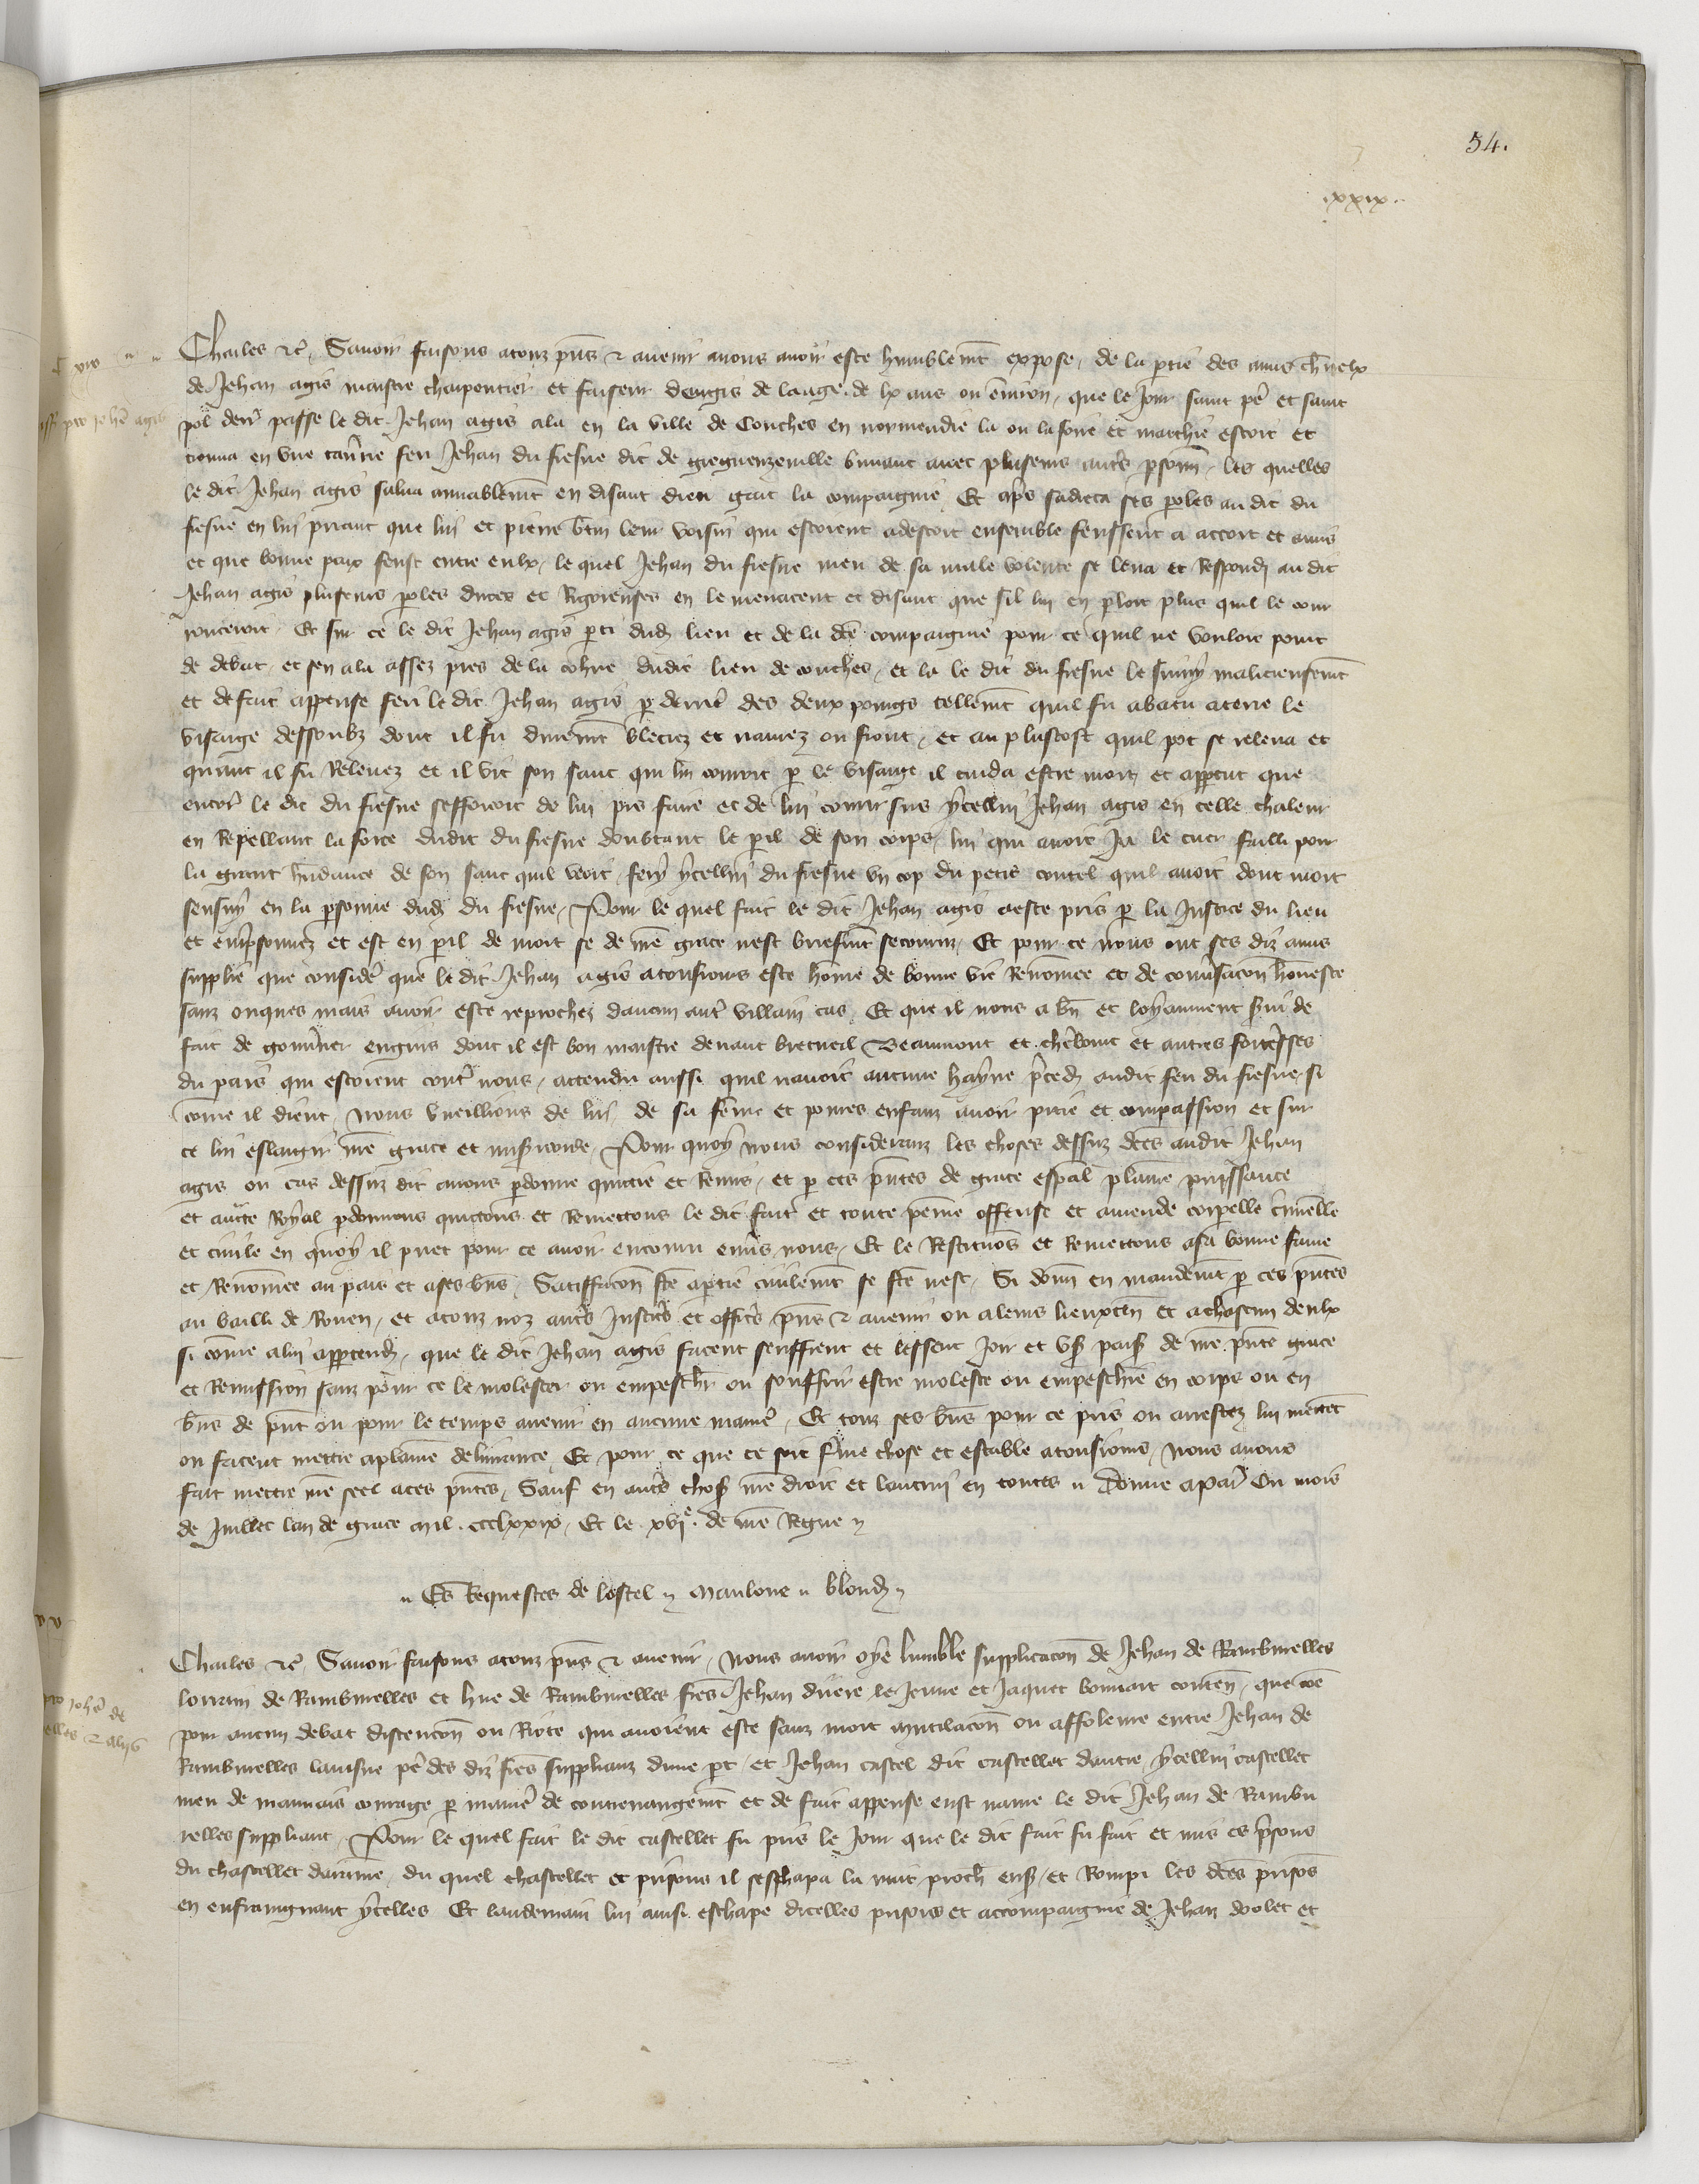 54.
xxix.
Charles etc. Savoir faisons a touz pns et avenir avons avoir este humblemt expose de la ptie des amis charnelx
de Jehan agis maistre charpentier et faiseur dengis de laage de lx ans ou environ que le Jour saint pe et saint
pol derr passe le dit Jehan agis ala en la ville de Conches en normendie la ou la foire et marchie estoit et
trouva en une taverne feu Jehan du fresne dit de greguenzeville buvant avec pluseurs autrs psonn les quelles
le dit Jehan agis salua amiablemt en disant dieu gart la compaignie Et aps sadreca ses poles au dit du
fresne en lui priant que lui et pierre btin leur voisin qui estoient a descort ensemble feussent a accort et amis
et que bonne paix feust entre eulx le quel Jehan du fresne meu de sa male volente se leva et Respondi au dit
Jehan agis pluseurs poles dures et Rigoreuses en le menacent et disant que sil lui en ploit plus quil le cour
rouceroit Et sur ce le dit Jehan agis pti dud lieu et de la dce compaignie pour ce quil ne vouloit point
de debat et sen ala assez pres de la cohue dudit lieu de conches et la le dit du fresne le suivy malicieusemt
et de fait appense feri le dit Jehan agis p derrie des deux poings tellemt quil fu abatu a terre le
visaige dessoubz dont il fu duremt bleciez et navrez ou front et au plustost quil pot se releva et
quant il fu Relevez et il vit son sanc qui lui couroit p le visaige il cuida estre mort et appceut que
encor le dit du fresne sefforcoit de lui pis faire et de lui courir sus ycellui Jehan agis en celle chaleur
en Repellant la force dudit du fresne doubtant le pil de son corps lui qui avoit Ja le cuer failli pour
la grant habundance de son sanc quil veoit fery ycellui du fresne un cop du petit coutel quil avoit dont mort
sensuy en la psonne dud du fresne Pour le quel fait le dit Jehan agis a este pris p la Justice du lieu
et emprisonnez et est en pil de mort se de nre grace nest briefmt secouruz Et pour ce nous ont ses diz amis
supplie que considere que le dit Jehan agis a tousjours este home de bonne vie Renomee et de conversacon honeste
sanz onques mais avoir este reprochez daucun autre villain cas Et que il nous a bn et loyaument servi de
fait de gouverner engins dont il est bon maistre devant bretueil Beaumont et cherbourc et autres forteresses
du pais qui estoient contre nous attendu aussi quil navoit aucune hayne preced audit feu du fresne si
come il dient Nous vueillions de lui de sa feme et povres enfanz avoir pitie et compassion et sur
ce lui eslargir nre grace et misericorde Pour quoy nous considerans les choses dessuz dces audit Jehan
agis ou cas dessuz dit avons pdonne quictie et Remis et p ces pntes de grace espal plaine puissance
et aucte Royal pdonnons quictons et Remettons le dit fait et toute peine offense et amende corpelle criminelle
et civile en quoy il puet pour ce avoir encouru envers nous Et le Restituons et Remettons a sa bonne fame
et Renomee au pais et a ses bns Satiffacon fte a ptie civilemt se fte nest Si donn en mandemt p ces pntes
au bailli de Rouen et a touz noz autrs Justics et offics pns et avenir ou a leurs lieuxten et a chascun deulx
si come a lui apptendra que le dit Jehan agis facent seuffrent et lessent Joir et user paisiblement de nre pnte grace
et Remission sanz pour ce le molester ou empescher ou souffrir estre moleste ou empeschie en corps ou en
bns de pnt ou pour le temps avenir en aucune manie Et touz ses bns pour ce pris ou arrestez lui mettet
ou facent mettre a plaine delivrance Et pour ce que ce soit ferme chose et estable a tousjours Nous avons
fait mettre nre seel a ces pntes Sauf en autres choses nre droit et lautrui en toutes Donne a Paris Ou mois
de Juillet lan de grace mil ccclxxix Et le xvie de nre Regne
Es Requestes de lostel Manlone blond
Charles etc Savoir faisons a touz pns et avenir Nous avoir oye lumble supplicacon de Jehan de Ramburelles
lorrain de Ramburelles et hue de Ramburelles freres Jehan le Jeune et Jaquet conten que come
pour aucun debat discencon ou Riote qui avoient este sanz mort mutilacon ou affoleure entre Jehan de
Ramburelles lainsne pe des diz freres supplianz dune pt et Jehan castel dit castellet dautre ycellui castellet
meu de mauvais courage p manie de contrevangemt et de fait appense eust navre le dit Jehan de Rambu
relles suppliant Pour le quel fait le dit castellet fu pris le Jour que le dit fait fu fait et mis es prisons
du chastellet darainne du quel chastellet et prisons il seschapa la nuit proch ens et Rompi les dces prisos
en enfraingnant ycelles Et landemain lui ainsi eschape dicelles prisons et accompaigne de Jehan et